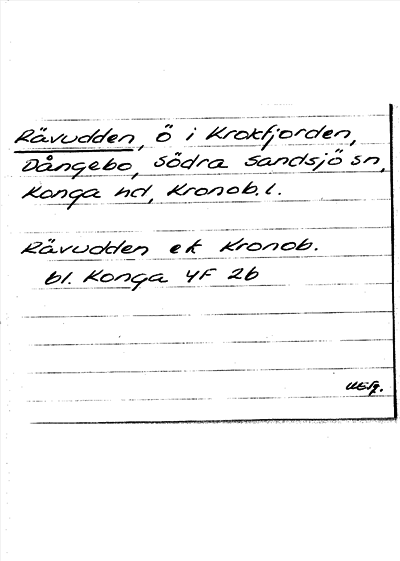 Rävudden, ö i Krokfjorden,
Dångebo, Södra Sandsjö sn,
Konga hd, Kronob.l.
Rävudden ek Kronob.
bl. Konga 4F 2b